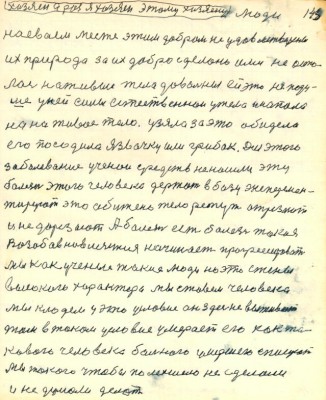 хозяин дров я хозяин этому хозяину люди 149
наоваем месте этим добром не удовлетворены
их природа за их добро сделано ими не оста
лась на живые тела довольны ей это не поду
ше у ней силы естественной у тела и напала
на на живое тело. узяла за это обидела
его посадила язвочку или грибок. Для этого
заболевание ученой средств не нашли эту
болезнь этого человека держат в базу эксперимен
тируют это обитень тело режут отрезают
и не дорезают А болезнь ест болезнь такая
Возобавновления начинает прогрессировать
мы как ученые такие люди но это стены
высокого характера мы ставим человека
мы кладем у это условие он здесь не выживает
там в таком условие умирает его как та
кового человека больного умершего списуют
мы такого чтобы полезного не сделали
и не думали делать